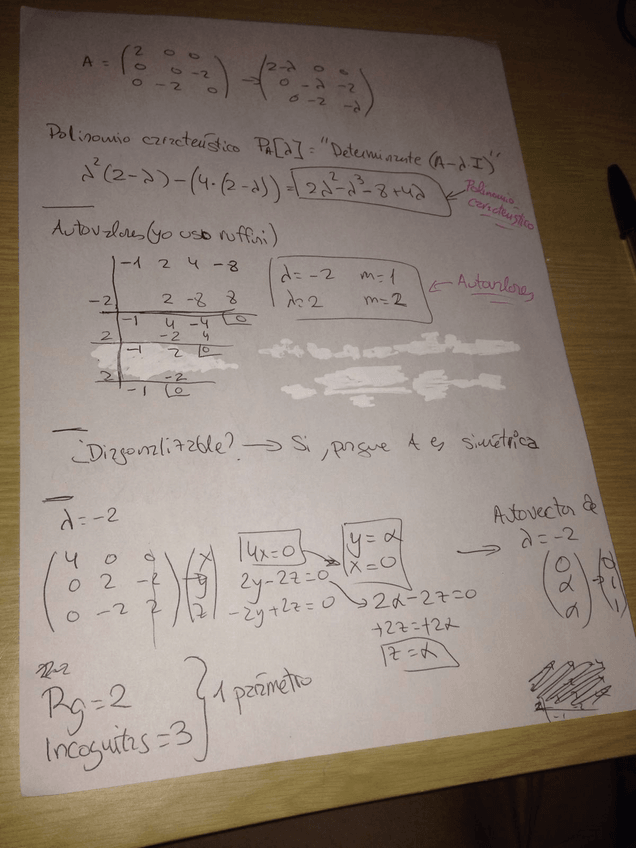 A = (2 0 0 / 0 0 -2 / 0 -2 0) → (2-λ 0 0 / 0 -λ -2 / 0 -2 -λ)
Polinomio característico P_A[λ] = "Determinante (A-λI)"
λ²(2-λ) - (4·(2-λ)) = 2λ² - λ³ - 8 + 4λ ← Polinomio característico
Autovalores (yo uso ruffini)
-1 2 4 -8
-2 2 -8 8
-1 4 -4 0
2 -2 4
-1 2 0
2 -2
-1 0
λ = -2 m = 1
λ = 2 m = 2
← Autovalores
¿Diagonalizable? → Si, porque A es simétrica
λ = -2
(4 0 0 / 0 2 -2 / 0 -2 2) (x / y / z)
4x = 0
2y - 2z = 0
-2y + 2z = 0
y = α
x = 0
2α - 2z = 0
+2z = +2α
z = α
→ Autovector de
λ = -2
(0 / α / α) → (0 / 1 / 1)
Rg = 2
Incognitas = 3
} 1 parámetro
2
-1